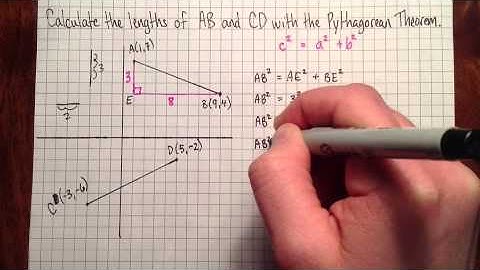 Calculate the lengths of AB and CD with the Pythagorean Theorem.
c² = a² + b²
A(1,7)
3
3
E
8
B(9,4)
AB² = AE² + BE²
AB² = 3²
AB²
AB²
D(5,-2)
C(-3,-6)